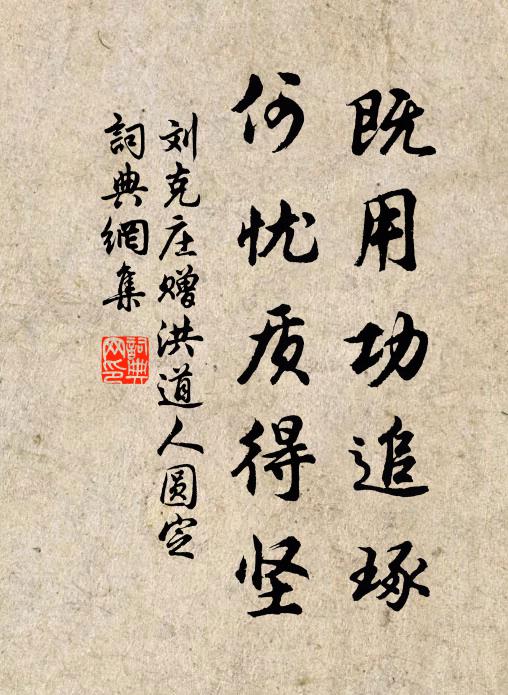 既用功追琢
何忧质得坚
刘克庄赠洪道人圆定
詞典網集
詞典
网印